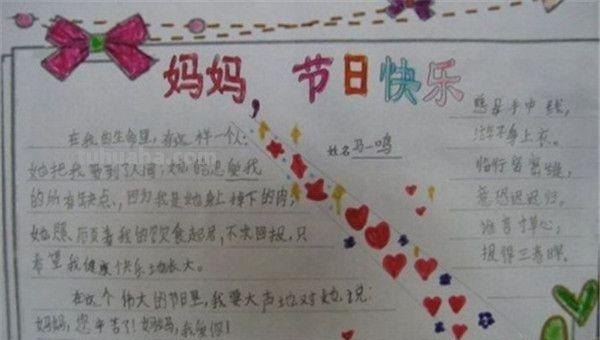 妈妈，节日快乐
姓名 马一鸣
在我的生命里，有这样一个人：
她把我带到人间；她能忍受我
的所有缺点、，因为我是她身上掉下的肉，
她照顾着我的饮食起居，不求回报，只
希望我健康快乐地长大。
在这个伟大的节日里，我要大声地对她说：
妈妈，您辛苦了！妈妈，我爱你！
慈母手中线，
游子身上衣。
临行密密缝，
意恐迟迟归。
谁言寸草心，
报得三春晖。